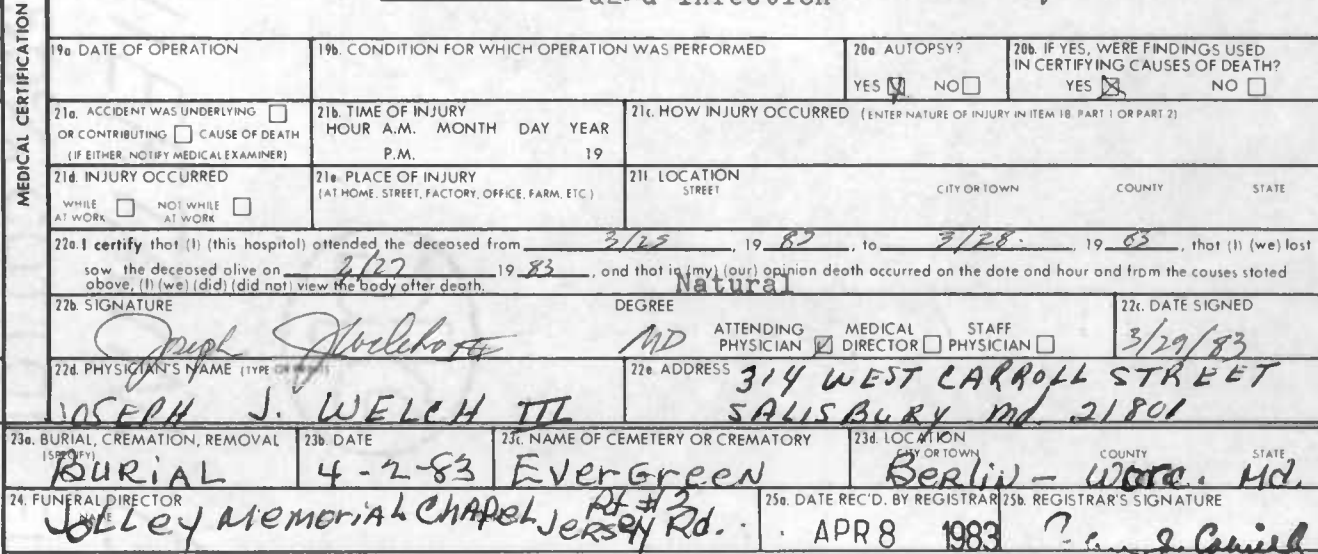 and Infection
MEDICAL CERTIFICATION
19a DATE OF OPERATION
19b. CONDITION FOR WHICH OPERATION WAS PERFORMED
20a AUTOPSY?
YES NO
20b. IF YES, WERE FINDINGS USED
IN CERTIFYING CAUSES OF DEATH?
YES NO
21a. ACCIDENT WAS UNDERLYING
OR CONTRIBUTING CAUSE OF DEATH
(IF EITHER, NOTIFY MEDICAL EXAMINER)
21b. TIME OF INJURY
HOUR A.M. MONTH DAY YEAR
P.M. 19
21c. HOW INJURY OCCURRED (ENTER NATURE OF INJURY IN ITEM 18, PART 1 OR PART 2)
21d. INJURY OCCURRED
WHILE AT WORK NOT WHILE AT WORK
21e PLACE OF INJURY
(AT HOME, STREET, FACTORY, OFFICE, FARM, ETC.)
21f LOCATION
STREET CITY OR TOWN COUNTY STATE
22a. I certify that (I) (this hospital) attended the deceased from 3/25, 19 , to 3/28. 19 83, that (I) (we) last
saw the deceased alive on /27 19 83, and that in (my) (our) opinion death occurred on the date and hour and from the causes stated
above, (I) (we) (did) (did not) view the body after death. Natural
22b. SIGNATURE
Joseph J Welch III
DEGREE
MD
ATTENDING PHYSICIAN MEDICAL DIRECTOR STAFF PHYSICIAN
22c. DATE SIGNED
3/29/83
22d. PHYSICIAN'S NAME (TYPE
JOSEPH J. WELCH III
22e. ADDRESS 314 WEST CARROLL STREET
SALISBURY Md. 21801
23a. BURIAL, CREMATION, REMOVAL
(SPECIFY)
BURIAL
23b. DATE
4-2-83
23c. NAME OF CEMETERY OR CREMATORY
EverGreen
23d. LOCATION
CITY OR TOWN COUNTY STATE
Berlin - Worc. Md.
24. FUNERAL DIRECTOR
NAME
Jolley Memorial Chapel Rt #3
Jersey Rd.
25a. DATE REC'D. BY REGISTRAR
APR 8 1983
25b. REGISTRAR'S SIGNATURE